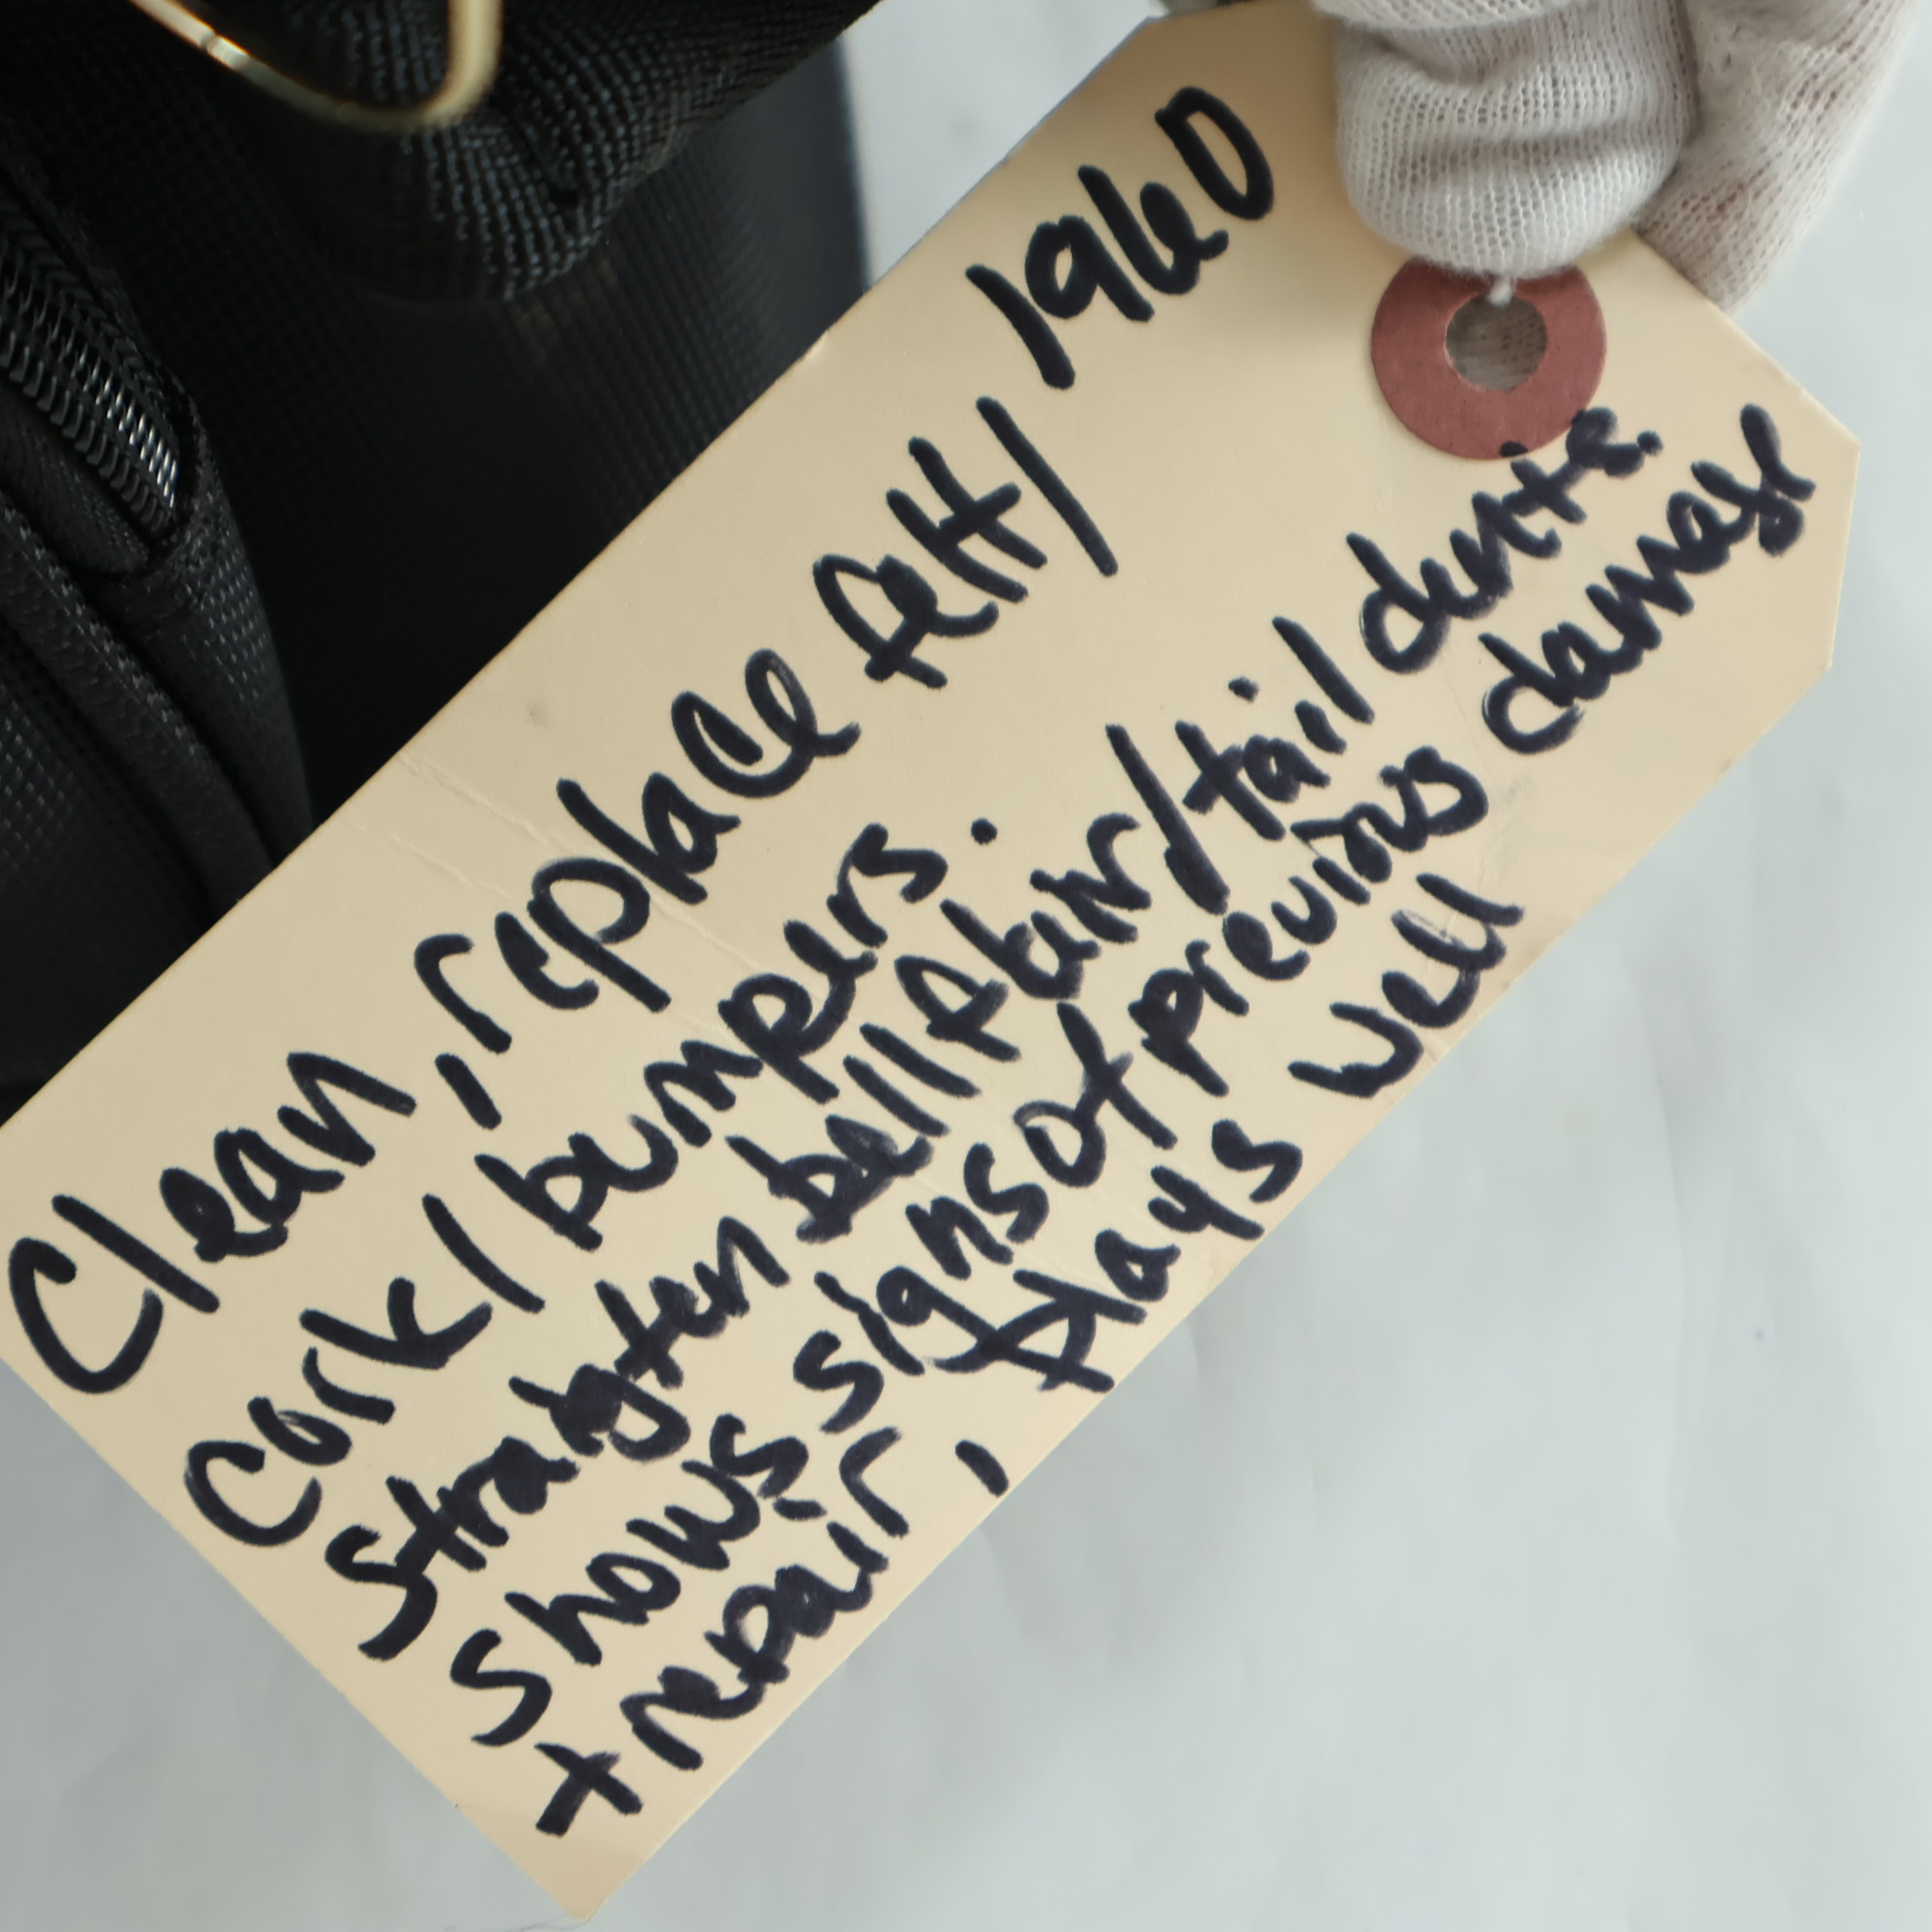 Clean, replace felt/ 1960
Cork/ bumpers.
Straigten bell /tail dents.
Shows signs of previous damage
+ repair, plays well